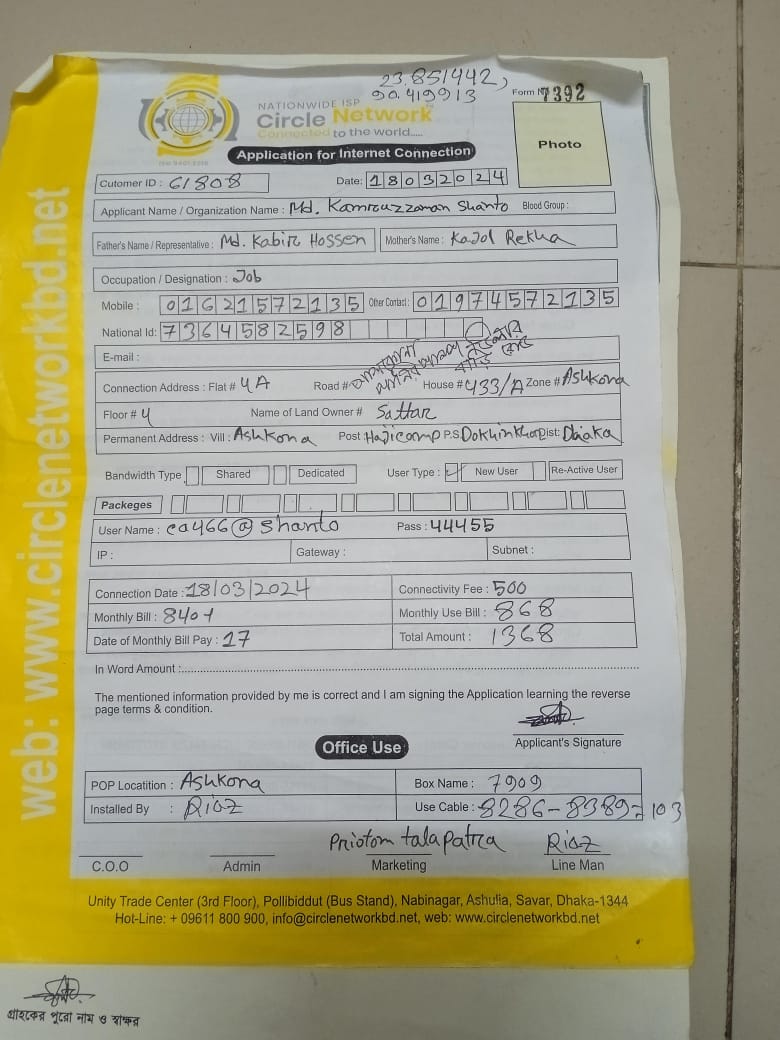 23.851442,
90.419913
Form N 7392
NATIONWIDE ISP
Circle Network
Connected to the world.....
ISO 9001:2015
Photo
Application for Internet Connection
Cutomer ID : 61808
Date: 18032024
Applicant Name / Organization Name : Md. Kamruzzaman Shanto Blood Group :
Father's Name / Representative : Md. Kabir Hossen Mother's Name : Kajol Rekha
Occupation / Designation : Job
Mobile : 01621572135 Other Contact : 01974572135
National Id: 7364582598
E-mail :
Connection Address : Flat # 4A Road # House # 433/A Zone # Ashkona
Floor # 4 Name of Land Owner # Sattar
Permanent Address : Vill : Ashkona Post Hajicamp P.S Dokhinkhan Dist: Dhaka
Bandwidth Type Shared Dedicated User Type : New User Re-Active User
Packeges
User Name : ca466@shanto Pass : 44455
IP : Gateway : Subnet :
Connection Date : 18/03/2024 Connectivity Fee : 500
Monthly Bill : 840+ Monthly Use Bill : 868
Date of Monthly Bill Pay : 17 Total Amount : 1368
In Word Amount :
The mentioned information provided by me is correct and I am signing the Application learning the reverse
page terms & condition.
Applicant's Signature
Office Use
POP Locatition : Ashkona Box Name : 7909
Installed By : Riaz Use Cable : 8286-8389=103
Priotom talapatra Riaz
C.O.O Admin Marketing Line Man
Unity Trade Center (3rd Floor), Pollibiddut (Bus Stand), Nabinagar, Ashulia, Savar, Dhaka-1344
Hot-Line: + 09611 800 900, info@circlenetworkbd.net, web: www.circlenetworkbd.net
web: www.circlenetworkbd.net
গ্রাহকের পুরো নাম ও স্বাক্ষর